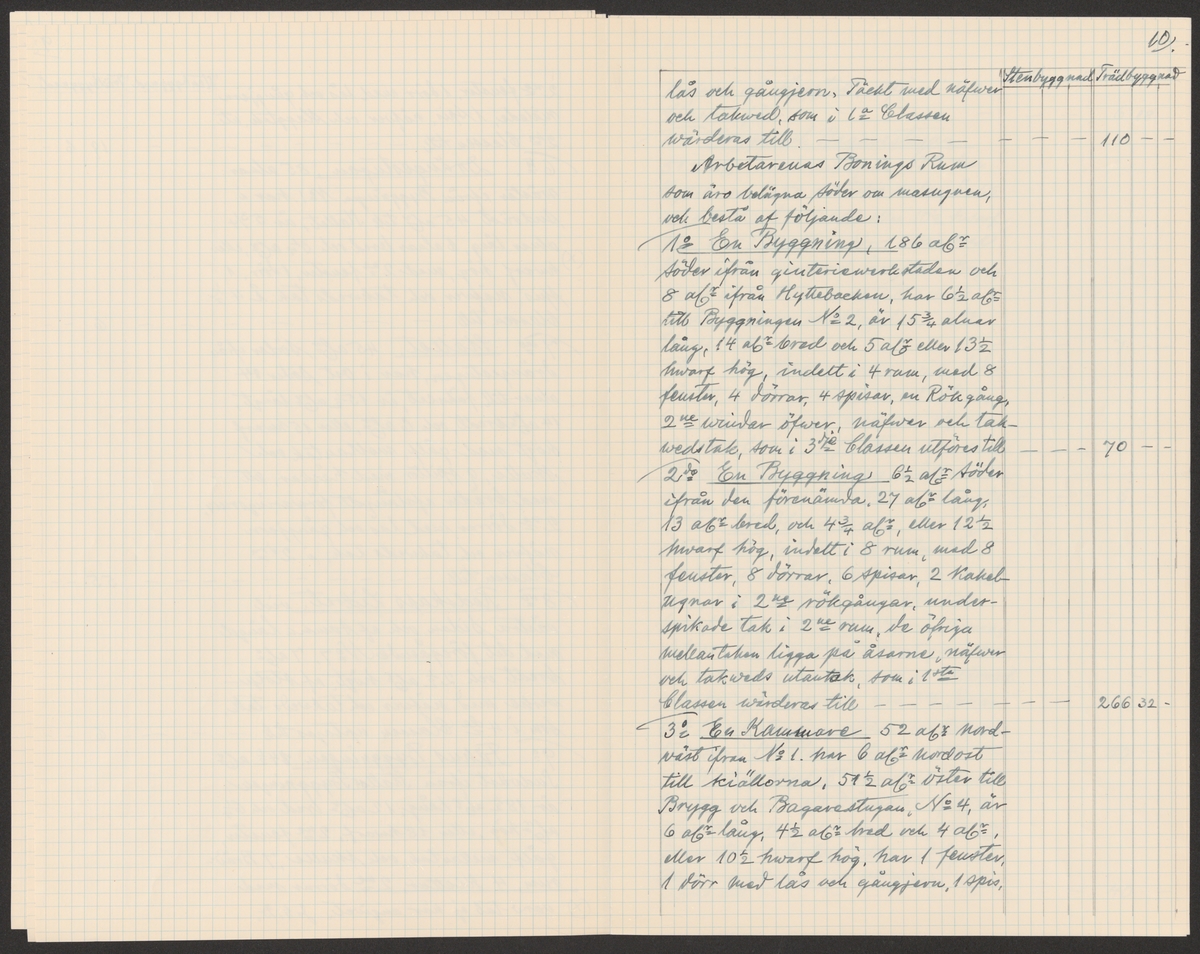 10).
Stenbyggnad Trädbyggnad
lås och gångjern. Täckt med näfwer
och takwed, som i 1a Classen
wärderas till — — — — — — — 110 — —
Arbetarenas Bonings Rum
som äro belägna söder om masugnen,
och bestå af följande:
1o En Byggning, 186 alr
söder ifrån gjuteriewerkstaden och
8 alr ifrån Hyttebacken, har 6½ alr
till Byggningen No 2, är 15¾ alnar
lång, 14 alr bred och 5 alr eller 13½
hwarf hög, indelt i 4 rum, med 8
fenster, 4 dörrar, 4 spisar, en Rökgång,
2ne windar öfwer, näfwer och tak-
wedstak, som i 3dje Classen utföres till — — — 70 — —
2do En Byggning 6½ alr söder
ifrån den förenämda. 27 alr lång,
13 alr bred, och 4¾ alr, eller 12½
hwarf hög, indelt i 8 rum, med 8
fenster, 8 dörrar, 6 spisar, 2 Kakel-
ugnar i 2ne rökgångar, under-
spikade tak i 2ne rum, de öfriga
mellantaken ligga på åsarne, näfwer
och takweds utantak, som i 1sta
Classen wärderas till — — — — — — — 266 32 -
3o En Kammare 52 alr nord-
väst ifrån No 1. har 6 alr nordost
till källorna, 51½ alr öster till
Brygg och Bagarestugan, No 4, är
6 alr lång, 4½ alr bred och 4 alr,
eller 10½ hwarf hög, har 1 fenster,
1 dörr med lås och gångjern, 1 spis,